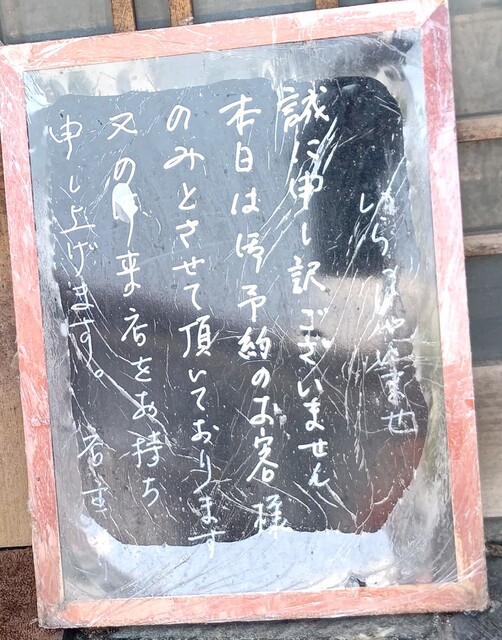 誠に申し訳ございません
本日は御予約のお客様
のみとさせて頂いております
又のご来店をお持ち
申し上げます。 店主